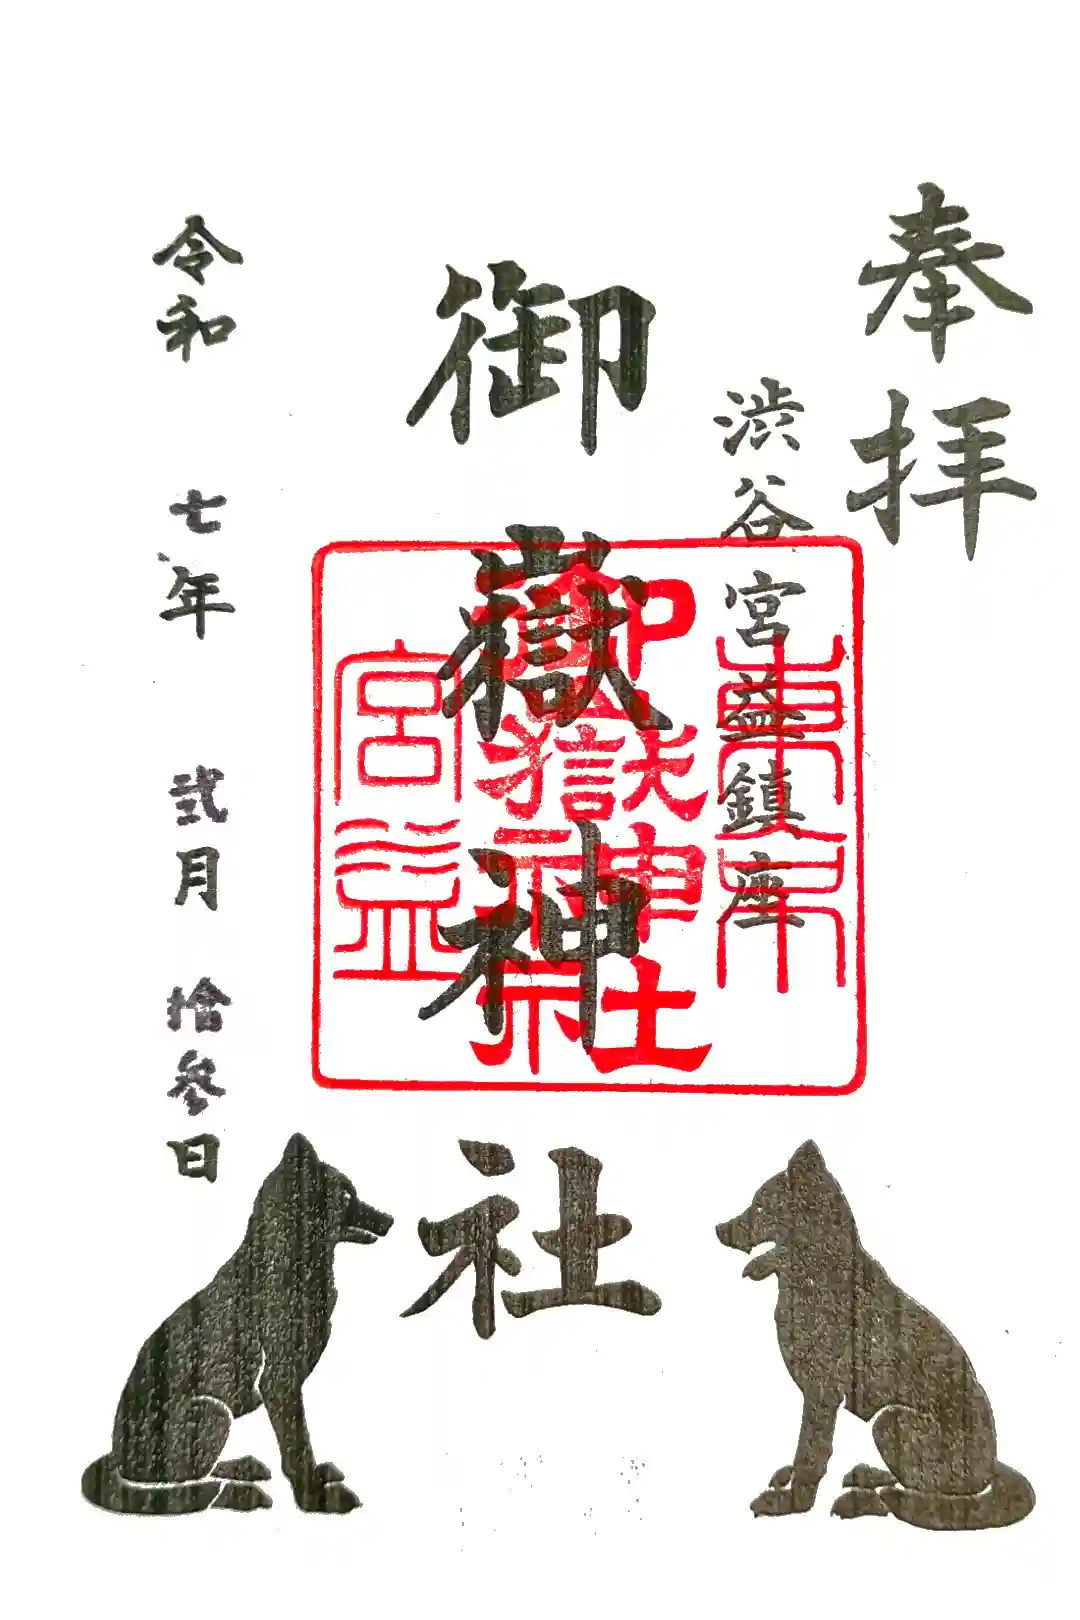 奉拝
渋谷宮益鎮座
御嶽神社
令和七年弐月拾参日
東京
御嶽神社
宮益